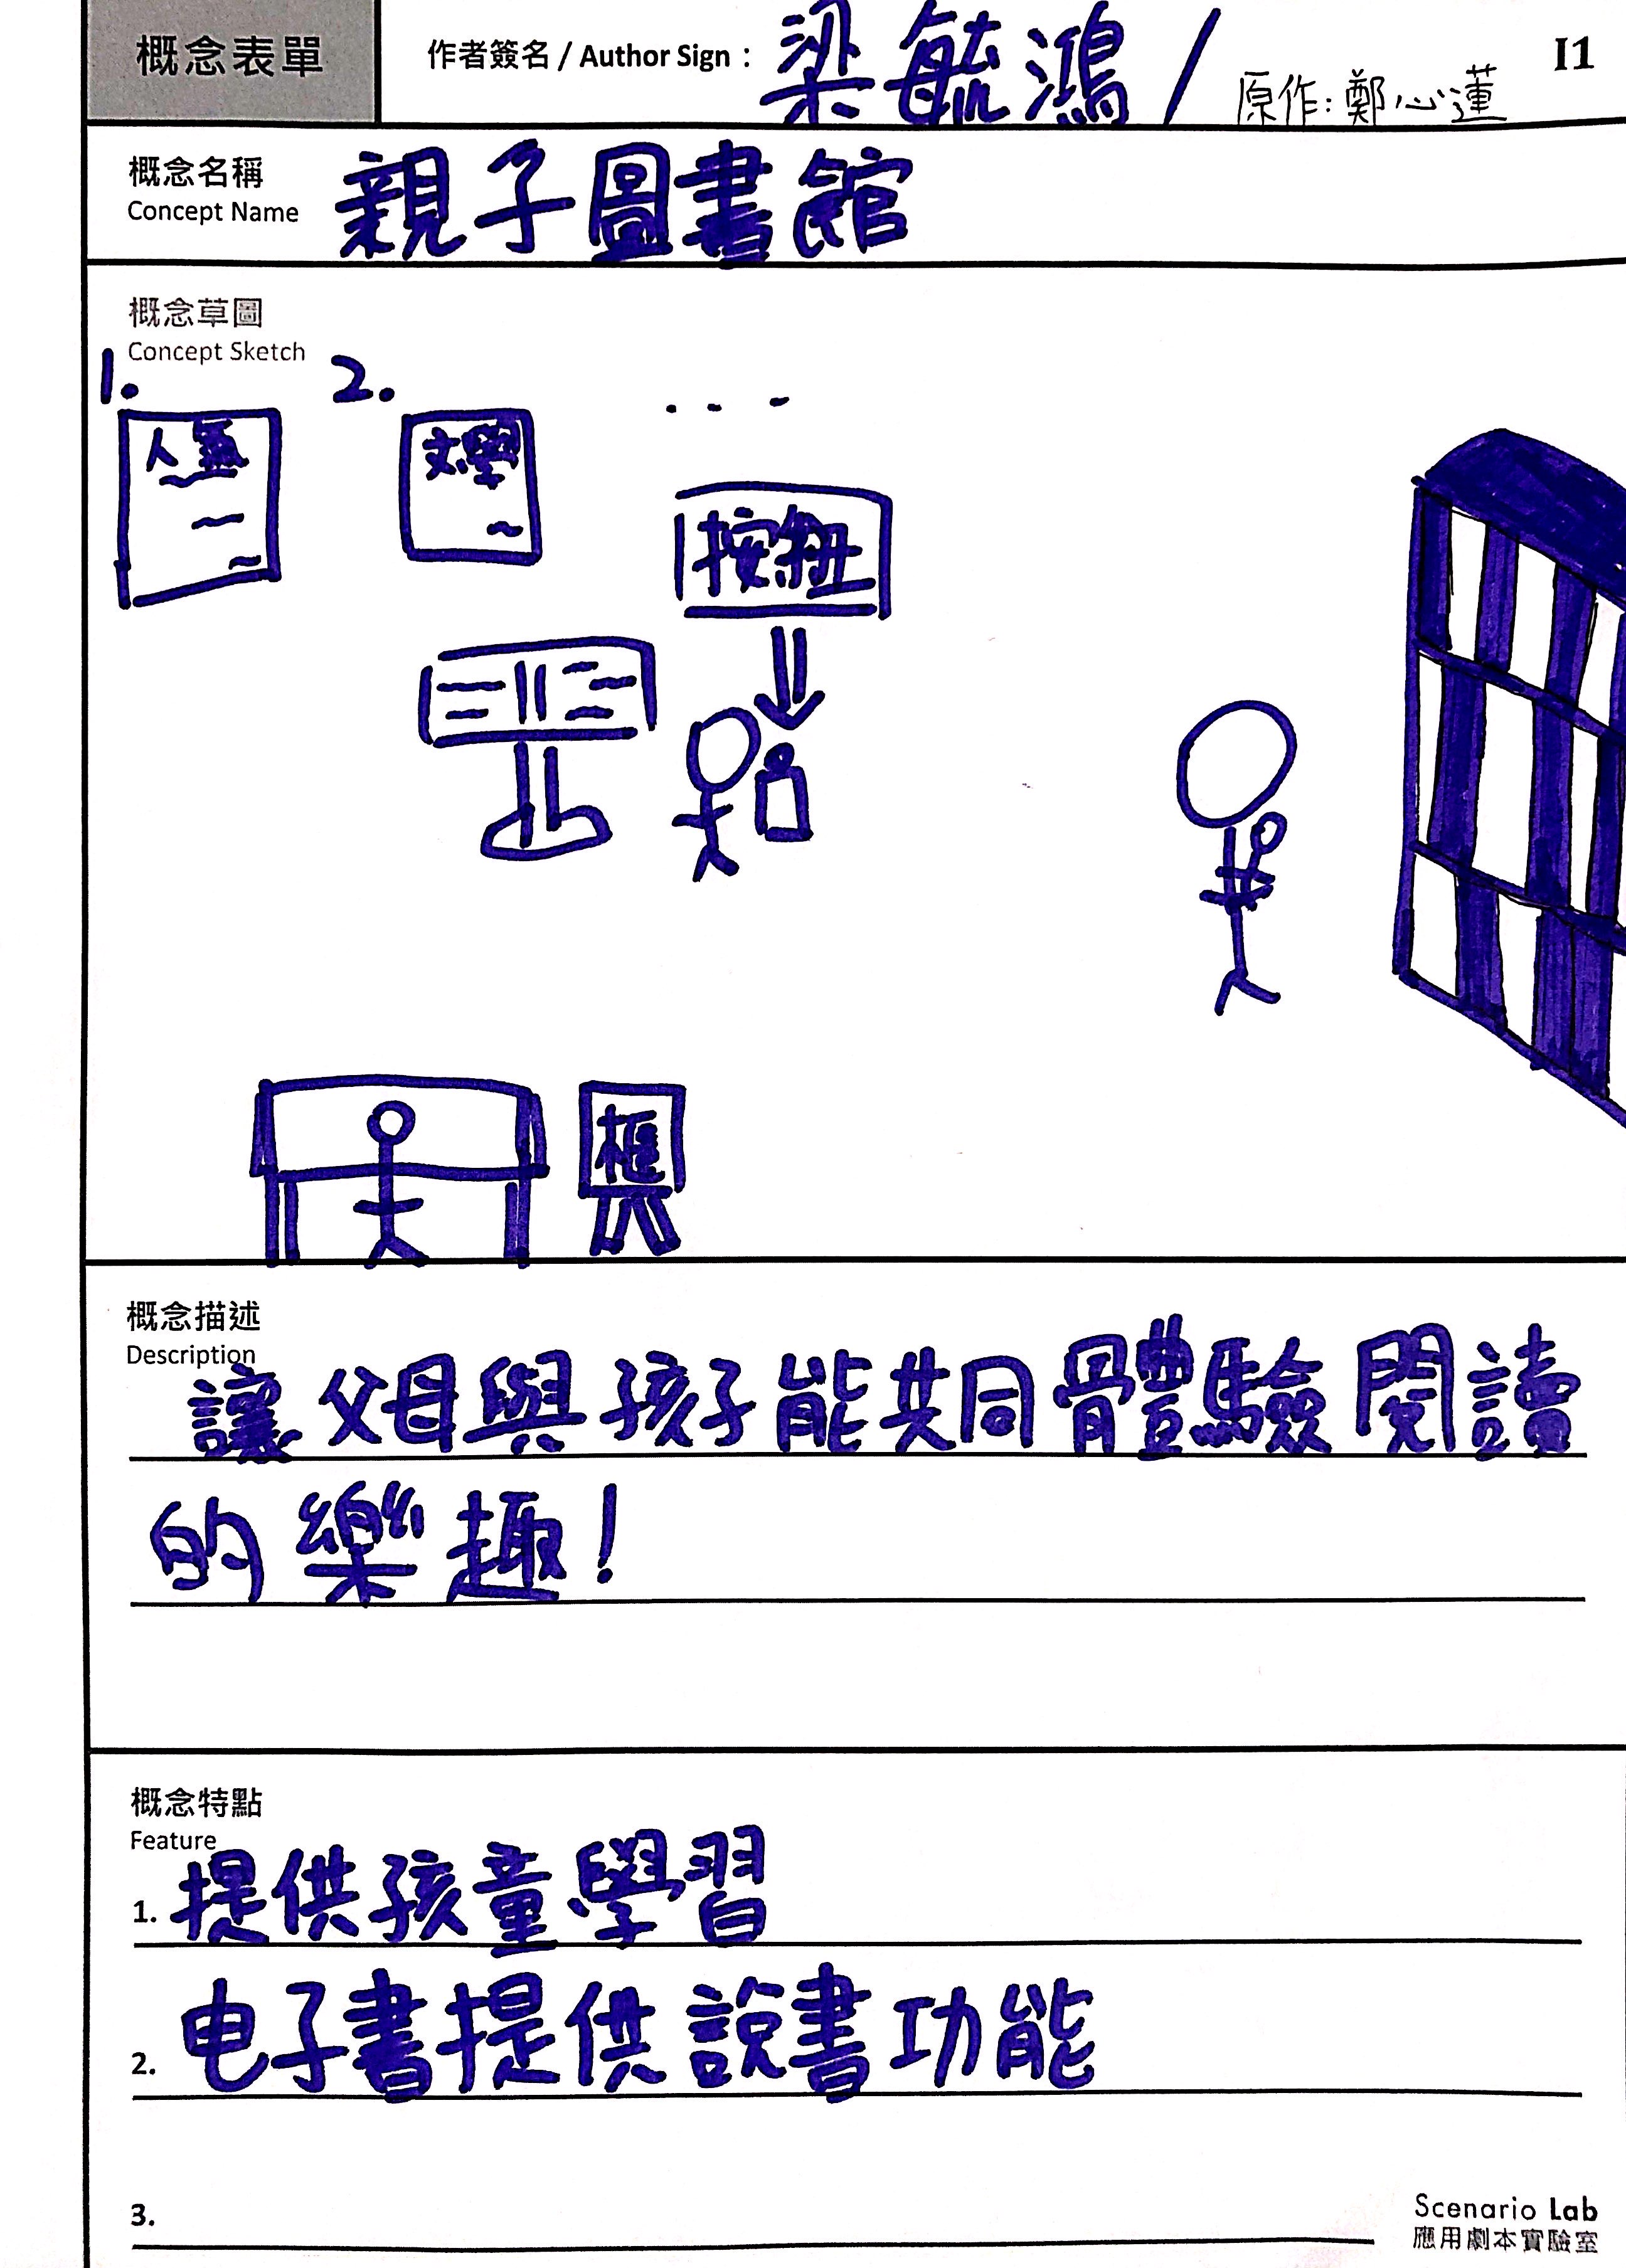 概念表單
作者簽名 / Author Sign： 梁毓鴻 / 原作：鄭心蓮
I1
概念名稱
Concept Name
親子圖書館
概念草圖
Concept Sketch
1. 2. ...
人氣
文學
按鈕
櫃
概念描述
Description
讓父母與孩子能共同體驗閱讀
的樂趣！
概念特點
Feature
1. 提供孩童學習
2. 电子書提供說書功能
3.
Scenario Lab
應用劇本實驗室